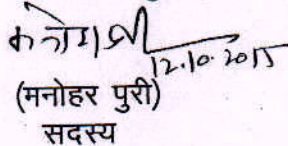 12.10.2015
(मनोहर पुरी)
सदस्य